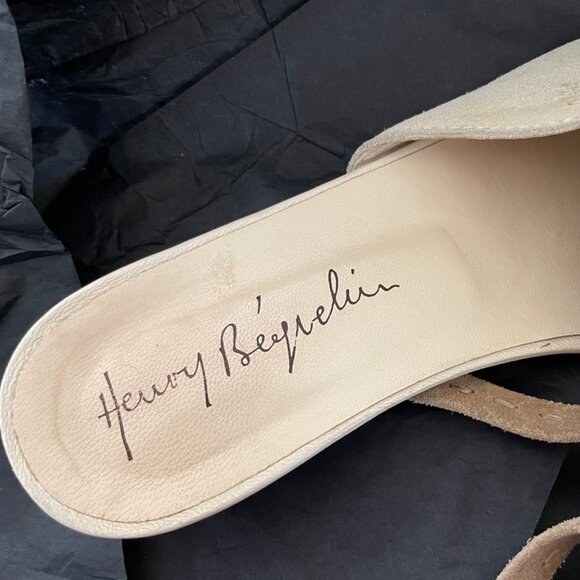 Henry Béguelin